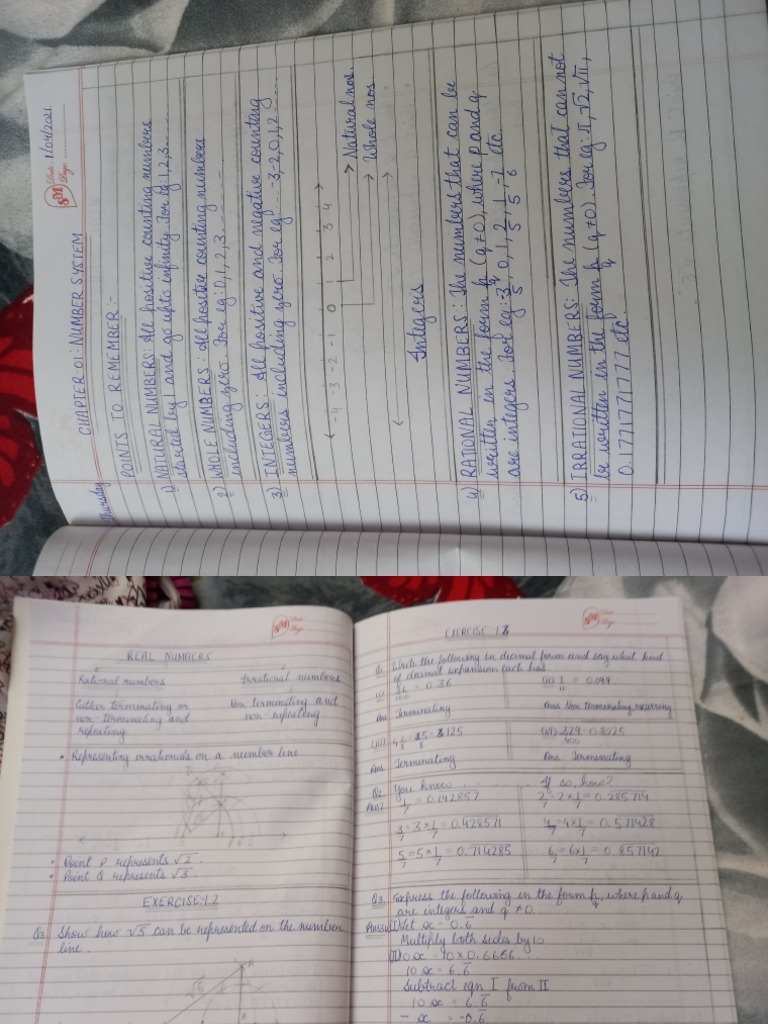 Date 1/04/2021
Page
CHAPTER 01: NUMBER SYSTEM
Thursday
POINTS TO REMEMBER:-
1) NATURAL NUMBERS: All positive counting numbers
started by 1 and go upto infinity. For eg: 1,2,3......
2) WHOLE NUMBERS: All positive counting numbers
including zero. For eg: 0,1,2,3......
3) INTEGERS: All positive and negative counting
numbers including zero. For eg: ...-3,-2,0,1,2.....
-4 -3 -2 -1 0 1 2 3 4
Natural nos.
Whole nos.
Integers
4) RATIONAL NUMBERS: The numbers that can be
written in the form p/q (q≠0), where p and q
are integers. For eg: 3/5, 0, 1, 2/5, 1/5, -7/6 etc.
5) IRRATIONAL NUMBERS: The numbers that can not
be written in the form p/q (q≠0). For eg: π, √2, √11,
0.1771771777 etc.
REAL NUMBERS
Rational numbers Irrational numbers
Either terminating or Non terminating and
non-terminating and non repeating
repeating
• Representing irrationals on a number line
• Point P represents √2.
• Point Q represents √3.
EXERCISE:1.2
Show how √5 can be represented on the number
line.
√5
Date
Page
EXERCISE-1.3
Q1 Write the following in decimal form and say what kind
of decimal expansion each has
(i) 36/100 = 0.36 (ii) 1/11 = 0.099
Ans Terminating Ans Non terminating recurring
(iii) (vi) 329/400 = 0.8225
Ans Terminating Ans Terminating
Q2 You know ..... If so, how?
Ans2 1/7 = 0.142857 2/7 = 2×1/7 = 0.285714
3/7 = 3×1/7 = 0.428571 4/7 = 4×1/7 = 0.571428
5/7 = 5×1/7 = 0.714285 6/7 = 6×1/7 = 0.857142
Q3. Express the following in the form p/q, where p and q
are integers and q ≠ 0.
Ans3 (I) Let x = 0.6̅
Multiply both sides by 10
(II) 10x = 10×0.6666...
10x = 6.6̅
Subtract eqn I from II
10x = 6.6̅
- x = -0.6̅